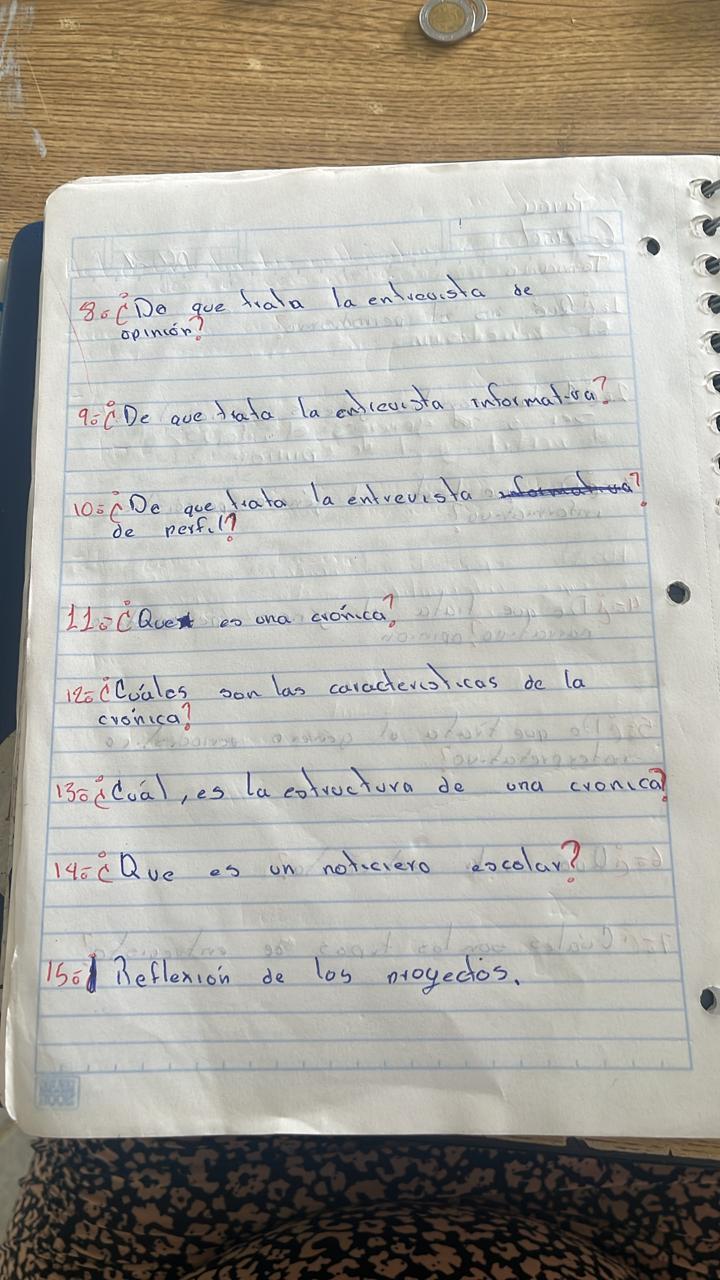 8.- ¿De que trata la entrevista de
opinión?
9.- ¿De que trata la entrevista informativa?
10.- ¿De que trata la entrevista informativa?
de perfil?
11.- ¿Que es una crónica?
12.- ¿Cuáles son las caracteristicas de la
crónica?
13.- ¿Cuál, es la estructura de una cronica?
14.- ¿Que es un noticiero escolar?
15.- Reflexión de los proyectos.